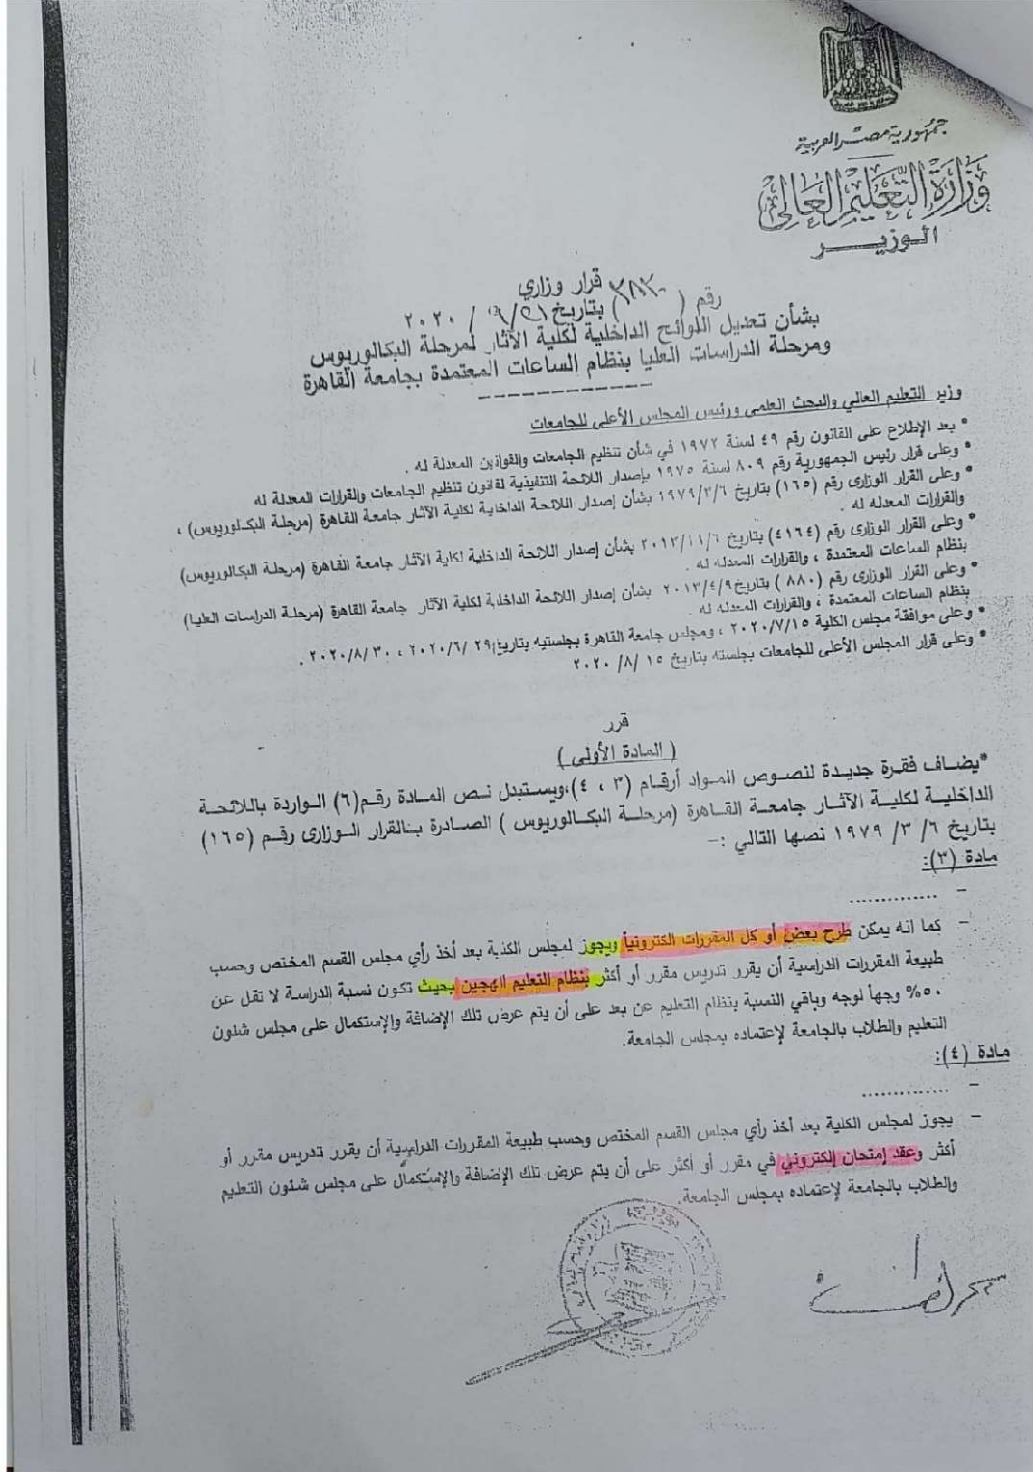 جمهورية مصر العربية
وزارة التعليم العالى
الوزيـــر
قرار وزاري
رقم ( ٣٨٣٠ ) بتاريخ / ٢٠٢٠
بشأن تعديل اللوائح الداخلية لكلية الآثار لمرحلة البكالوريوس
ومرحلة الدراسات العليا بنظام الساعات المعتمدة بجامعة القاهرة
وزير التعليم العالي والبحث العلمى ورئيس المجلس الأعلى للجامعات
* بعد الإطلاع على القانون رقم ٤٩ لسنة ١٩٧٢ في شأن تنظيم الجامعات والقوانين المعدلة له .
* وعلى قرار رئيس الجمهورية رقم ٨٠٩ لسنة ١٩٧٥ بإصدار اللائحة التنفيذية لقانون تنظيم الجامعات والقرارات المعدلة له
* وعلى القرار الوزارى رقم (١٦٥) بتاريخ ١٩٧٩/٣/٦ بشأن إصدار اللائحة الداخلية لكلية الآثار جامعة القاهرة (مرحلة البكالوريوس) ،
والقرارات المعدله له .
* وعلى القرار الوزارى رقم (٤١٦٤) بتاريخ ٢٠١٣/١١/٦ بشأن إصدار اللائحة الداخلية لكلية الآثار جامعة القاهرة (مرحلة البكالوريوس)
بنظام الساعات المعتمدة ، والقرارات المعدله له .
* وعلى القرار الوزارى رقم (٨٨٠ ) بتاريخ ٢٠١٣/٤/٩ بشأن إصدار اللائحة الداخلية لكلية الآثار جامعة القاهرة (مرحلة الدراسات العليا)
بنظام الساعات المعتمدة ، والقرارات المعدله له .
* وعلى موافقة مجلس الكلية ٢٠٢٠/٧/١٥ ، ومجلس جامعة القاهرة بجلستيه بتاريخ ٢٠٢٠/٦/ ٢٩ ، ٣٠ /٢٠٢٠/٨ .
* وعلى قرار المجلس الأعلى للجامعات بجلسته بتاريخ ١٥ /٨/ ٢٠٢٠
قرر
( المادة الأولى )
*يضاف فقرة جديدة لنصوص المواد أرقام (٣ ، ٤)،ويستبدل نص المادة رقم(٦) الواردة باللائحة
الداخلية لكلية الآثار جامعة القاهرة (مرحلة البكالوريوس ) الصادرة بالقرار الوزارى رقم (١٦٥)
بتاريخ ٦/ ٣/ ١٩٧٩ نصها التالي :–
مادة (٣):
– ..............
– كما انه يمكن طرح بعض أو كل المقررات الكترونيا ويجوز لمجلس الكلية بعد أخذ رأي مجلس القسم المختص وحسب
طبيعة المقررات الدراسية أن يقرر تدريس مقرر أو أكثر بنظام التعليم الهجين بحيث تكون نسبة الدراسة لا تقل عن
٥٠% وجهاً لوجه وباقي النسبة بنظام التعليم عن بعد على أن يتم عرض تلك الإضافة والإستكمال على مجلس شئون
التعليم والطلاب بالجامعة لإعتماده بمجلس الجامعة.
مادة (٤):
– ..............
– يجوز لمجلس الكلية بعد أخذ رأي مجلس القسم المختص وحسب طبيعة المقررات الدراسية أن يقرر تدريس مقرر أو
أكثر وعقد إمتحان إلكتروني في مقرر أو أكثر على أن يتم عرض تلك الإضافة والإستكمال على مجلس شئون التعليم
والطلاب بالجامعة لإعتماده بمجلس الجامعة.